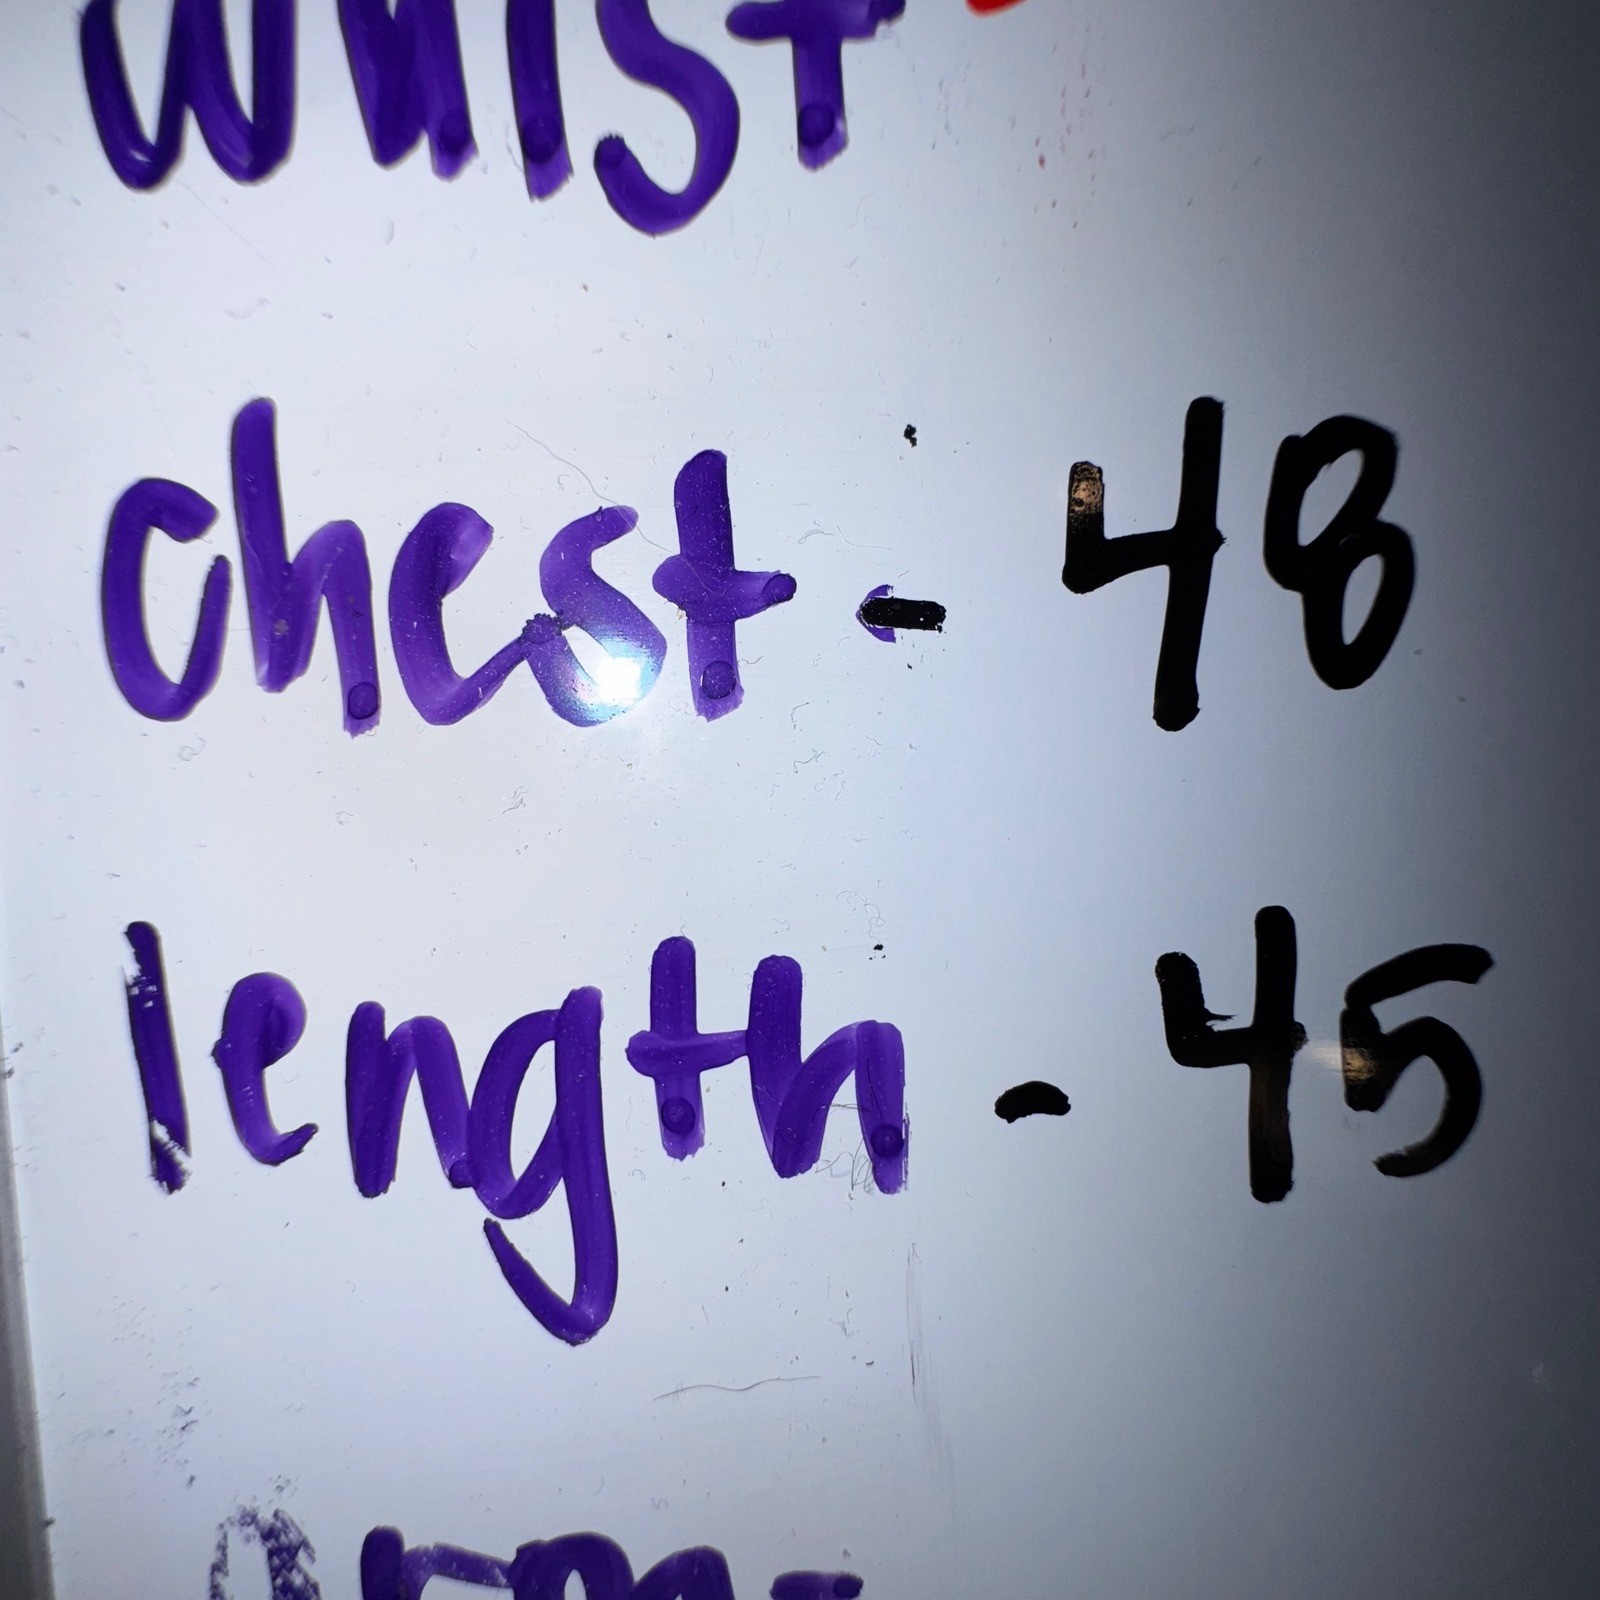 whist
chest - 48
length - 45
arm -